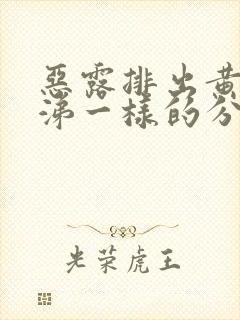 惡露排出黄
涕一樣的分
光荣虎王